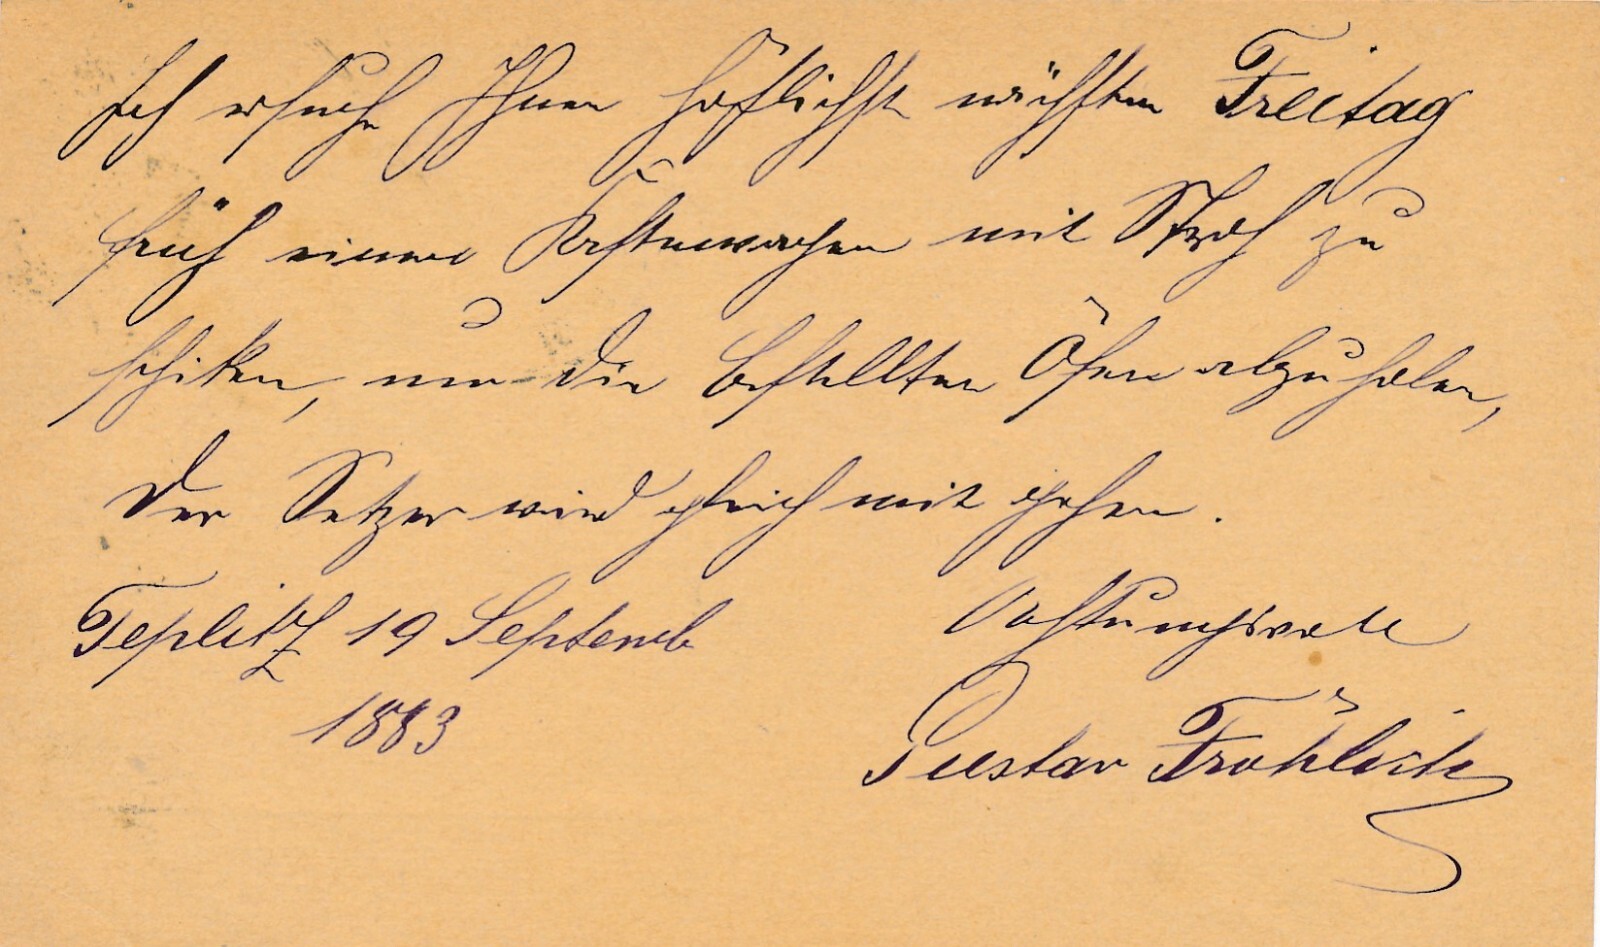 Ich ersuche Ihnen höflichst nächsten Freitag
früh einen Kastenwagen mit Stroh zu
schiken, um die bestellten Öfen abzuholen,
Der Setzer wird gleich mit gehen.
Teplitz 19 Septemb
1883
Achtungsvoll
Gustav Fröhlich